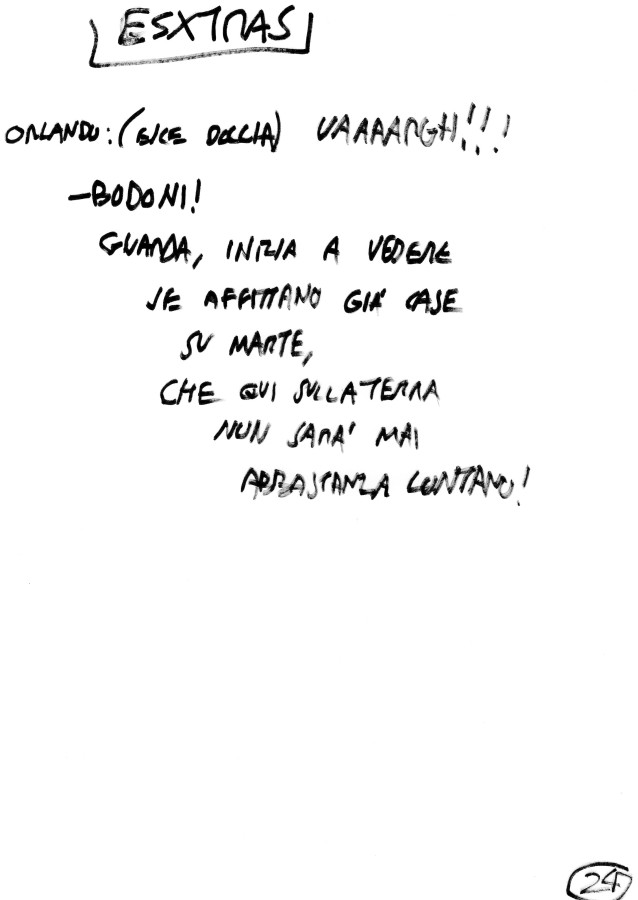 ESXTRAS
ORLANDO: (ESCE DOCCIA) UAAAARGH!!!
—BODONI!
GUARDA, INIZIA A VEDERE
SE AFFITTANO GIÀ CASE
SU MARTE,
CHE QUI SULLA TERRA
NON SARÀ MAI
ABBASTANZA LONTANO!
24